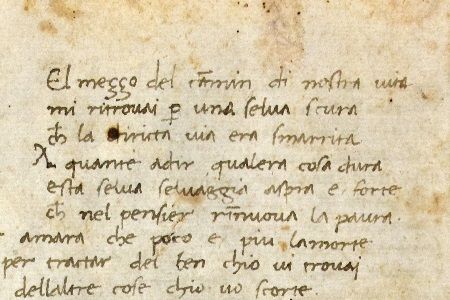 El meggo del cãmin di nostra vita
mi ritrouai ꝑ una selua scura
ch̃ la diricta uia era smarrita
A quante adir qualera cosa dura
esta selua seluaggia aspra e forte
ch̃ nel pensier rĩnuoua la paura.
amara che poco e piu lamorte
per tractar del ben chio ui trouai
dellaltre cose chio uo scorte